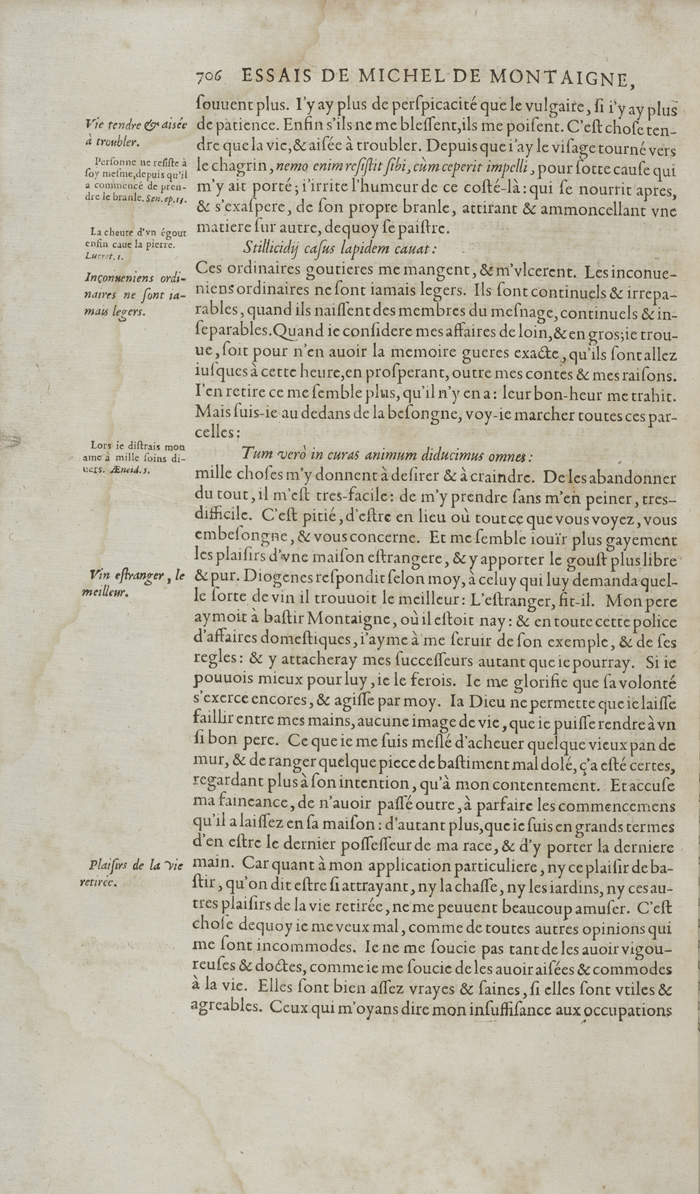 706 ESSAIS DE MICHEL DE MONTAIGNE,
ſouuent plus. I'y ay plus de perſpicacité que le vulgaire, ſi i'y ay plus
Vie tendre & aisée
à troubler.
de patience. Enfin s'ils ne me bleſſent, ils me poiſent. C'eſt choſe ten-
dre que la vie, & aiſée à troubler. Depuis que i'ay le viſage tourné vers
Perſonne ne reſiſte à
ſoy meſme, depuis qu'il
a commencé de pren-
dre le branle. Sen. ep. 13.
le chagrin, nemo enim reſiſtit ſibi, cùm ceperit impelli, pour ſotte cauſe qui
m'y ait porté; i'irrite l'humeur de ce coſté-là: qui ſe nourrit apres,
& s'exaſpere, de ſon propre branle, attirant & ammoncellant vne
matiere ſur autre, dequoy ſe paiſtre.
La cheute d'vn égout
enfin caue la pierre.
Lucret. 1.
Stillicidij caſus lapidem cauat:
Inçonueniens ordi-
naires ne ſont ia-
mais legers.
Ces ordinaires goutieres me mangent, & m'vlcerent. Les inconue-
niens ordinaires ne ſont iamais legers. Ils ſont continuels & irrepa-
rables, quand ils naiſſent des membres du meſnage, continuels & in-
ſeparables. Quand ie conſidere mes affaires de loin, & en gros; ie trou-
ue, ſoit pour n'en auoir la memoire gueres exacte, qu'ils ſont allez
iuſques à cette heure, en proſperant, outre mes contes & mes raiſons.
I'en retire ce me ſemble plus, qu'il n'y en a: leur bon-heur me trahit.
Mais ſuis-ie au dedans de la beſongne, voy-ie marcher toutes ces par-
celles:
Lors ie diſtrais mon
ame à mille ſoins di-
uers. Æneid. 5.
Tum verò in curas animum diducimus omnes:
mille choſes m'y donnent à deſirer & à craindre. De les abandonner
du tout, il m'eſt tres-facile: de m'y prendre ſans m'en peiner, tres-
difficile. C'eſt pitié, d'eſtre en lieu où tout ce que vous voyez, vous
embeſongne, & vous concerne. Et me ſemble iouïr plus gayement
les plaiſirs d'vne maiſon eſtrangere, & y apporter le gouſt plus libre
Vin eſtranger, le
meilleur.
& pur. Diogenes reſpondit ſelon moy, à celuy qui luy demanda quel-
le ſorte de vin il trouuoit le meilleur: L'eſtranger, fit-il. Mon pere
aymoit à baſtir Montaigne, où il eſtoit nay: & en toute cette police
d'affaires domeſtiques, i'ayme à me ſeruir de ſon exemple, & de ſes
regles: & y attacheray mes ſucceſſeurs autant que ie pourray. Si ie
pouuois mieux pour luy, ie le ferois. Ie me glorifie que ſa volonté
s'exerce encores, & agiſſe par moy. Ia Dieu ne permette que ie laiſſe
faillir entre mes mains, aucune image de vie, que ie puiſſe rendre à vn
ſi bon pere. Ce que ie me ſuis meſlé d'acheuer quelque vieux pan de
mur, & de ranger quelque piece de baſtiment mal dolé, ç'a eſté certes,
regardant plus à ſon intention, qu'à mon contentement. Et accuſe
ma faineance, de n'auoir paſſé outre, à parfaire les commencemens
qu'il a laiſſez en ſa maiſon: d'autant plus, que ie ſuis en grands termes
d'en eſtre le dernier poſſeſſeur de ma race, & d'y porter la derniere
Plaiſirs de la vie
retirée.
main. Car quant à mon application particuliere, ny ce plaiſir de ba-
ſtir, qu'on dit eſtre ſi attrayant, ny la chaſſe, ny les iardins, ny ces au-
tres plaiſirs de la vie retirée, ne me peuuent beaucoup amuſer. C'eſt
choſe dequoy ie me veux mal, comme de toutes autres opinions qui
me ſont incommodes. Ie ne me ſoucie pas tant de les auoir vigou-
reuſes & doctes, comme ie me ſoucie de les auoir aiſées & commodes
à la vie. Elles ſont bien aſſez vrayes & ſaines, ſi elles ſont vtiles &
agreables. Ceux qui m'oyans dire mon inſuffiſance aux occupations